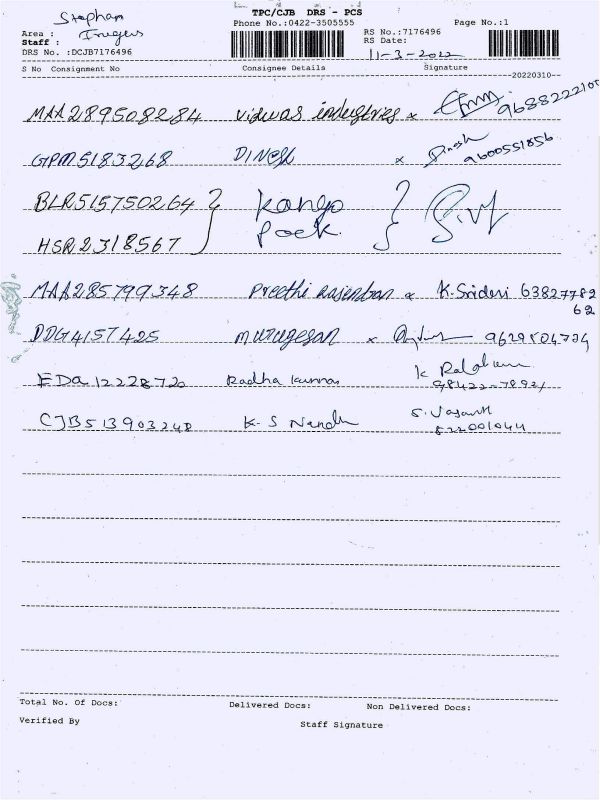 Stephan TPC/CJB DRS - PCS
Phone No.:0422-3505555 Page No.:1
Area :
Staff :
RS No.:7176496
DRS No. :DCJB7176496 RS Date: 11-3-2022
S No Consignment No Consignee Details Signature
20220310
MAA289508284 viswas industries x 9688222100
GPM5183268 DINESH x Dinesh 9600551856
BLR515750264 Kongo
HSR2318567 Pack.
MAA285799348 Preethi x K.Sridevi 63827782
62
DDG4157425 murugesan x 9629504734
EDA12228720 Radha kumar K
CJB513903240 K. S Nandh S. Vasanth
Total No. Of Docs: Delivered Docs: Non Delivered Docs:
Verified By Staff Signature